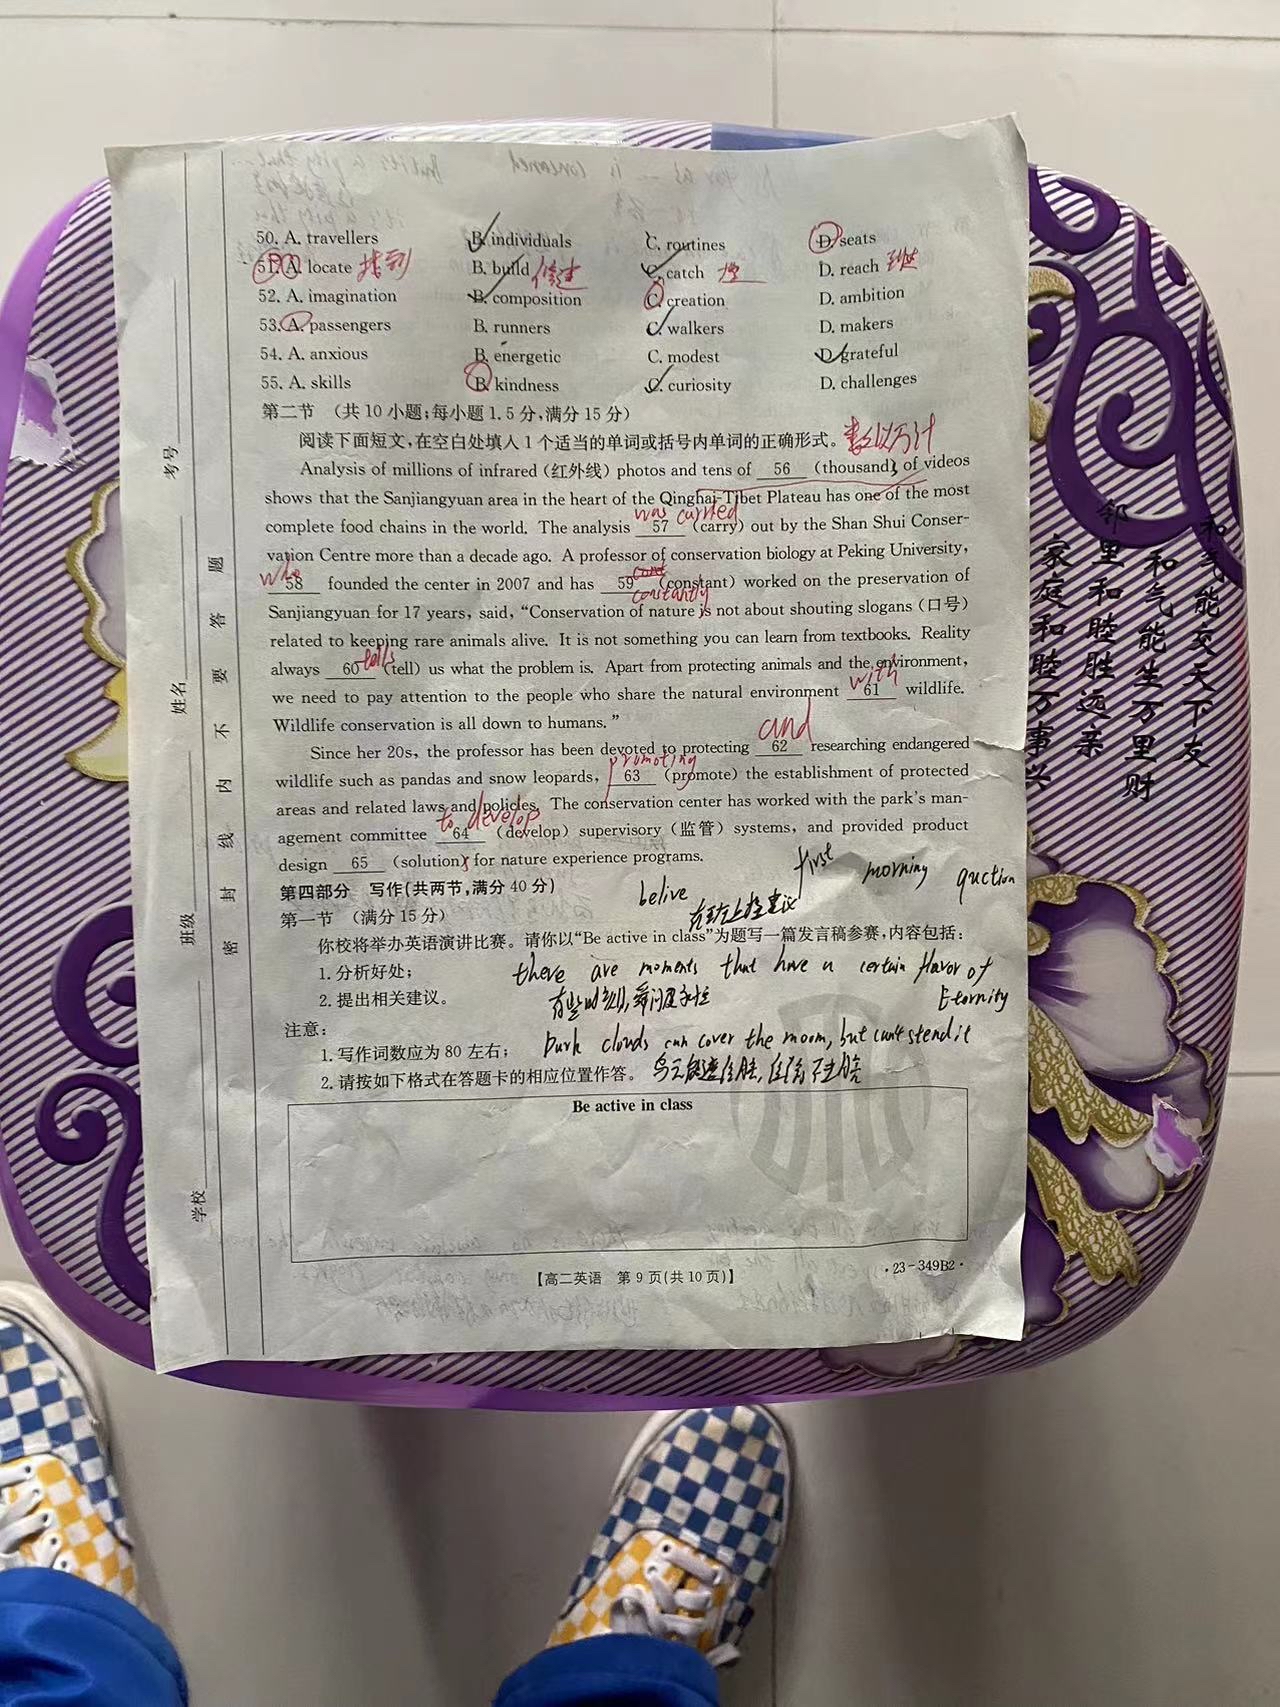 50. A. travellers B. individuals C. routines D. seats
51. A. locate 找到 B. build 修建 C. catch D. reach 到达
52. A. imagination B. composition C. creation D. ambition
53. A. passengers B. runners C. walkers D. makers
54. A. anxious B. energetic C. modest D. grateful
55. A. skills B. kindness C. curiosity D. challenges
第二节 (共 10 小题;每小题 1.5 分,满分 15 分)
阅读下面短文,在空白处填入 1 个适当的单词或括号内单词的正确形式。 数以万计
Analysis of millions of infrared (红外线) photos and tens of 56 (thousand) of videos
shows that the Sanjiangyuan area in the heart of the Qinghai-Tibet Plateau has one of the most
was carried
complete food chains in the world. The analysis 57 (carry) out by the Shan Shui Conser-
vation Centre more than a decade ago. A professor of conservation biology at Peking University,
who
58 founded the center in 2007 and has 59 (constant) worked on the preservation of
constantly
Sanjiangyuan for 17 years, said, “Conservation of nature is not about shouting slogans (口号)
related to keeping rare animals alive. It is not something you can learn from textbooks. Reality
always 60 tells (tell) us what the problem is. Apart from protecting animals and the environment,
with
we need to pay attention to the people who share the natural environment 61 wildlife.
Wildlife conservation is all down to humans.”
and
Since her 20s, the professor has been devoted to protecting 62 researching endangered
promoting
wildlife such as pandas and snow leopards, 63 (promote) the establishment of protected
areas and related laws and policies. The conservation center has worked with the park's man-
to develop
agement committee 64 (develop) supervisory (监管) systems, and provided product
design 65 (solution) for nature experience programs.
first morning quction
第四部分 写作(共两节,满分 40 分)
belive
第一节 (满分 15 分)
你校将举办英语演讲比赛。请你以“Be active in class”为题写一篇发言稿参赛,内容包括:
1. 分析好处;
there are moments that have a certain flavor of
Eternity
2. 提出相关建议。
注意:
Dark clouds can cover the moom, but can't stend it
1. 写作词数应为 80 左右;
2. 请按如下格式在答题卡的相应位置作答。
Be active in class
【高二英语 第 9 页(共 10 页)】
·23-349B2·
学校
班级
姓名
考号
密 封 线 内 不 要 答 题
和气能交天下友
和气能生万里财
邻里和睦胜远亲
家庭和睦万事兴